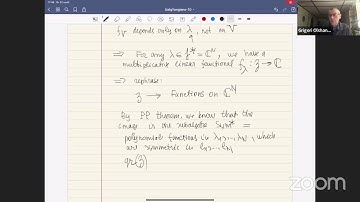 f_V depends only on λ, not on V
⇒ For any λ ∈ f* = ℂ^N, we have a
multiplicative linear functional f_λ : z → ℂ
⇒ rephrase:
z → Functions on ℂ^N
By PP theorem, we know that the
image is the subalgebra Sym* =
polynomial functions in λ_1, ..., λ_N, which
are symmetric in l_1, ..., l_N
gr(z)
Grigori Olshan...
zoom